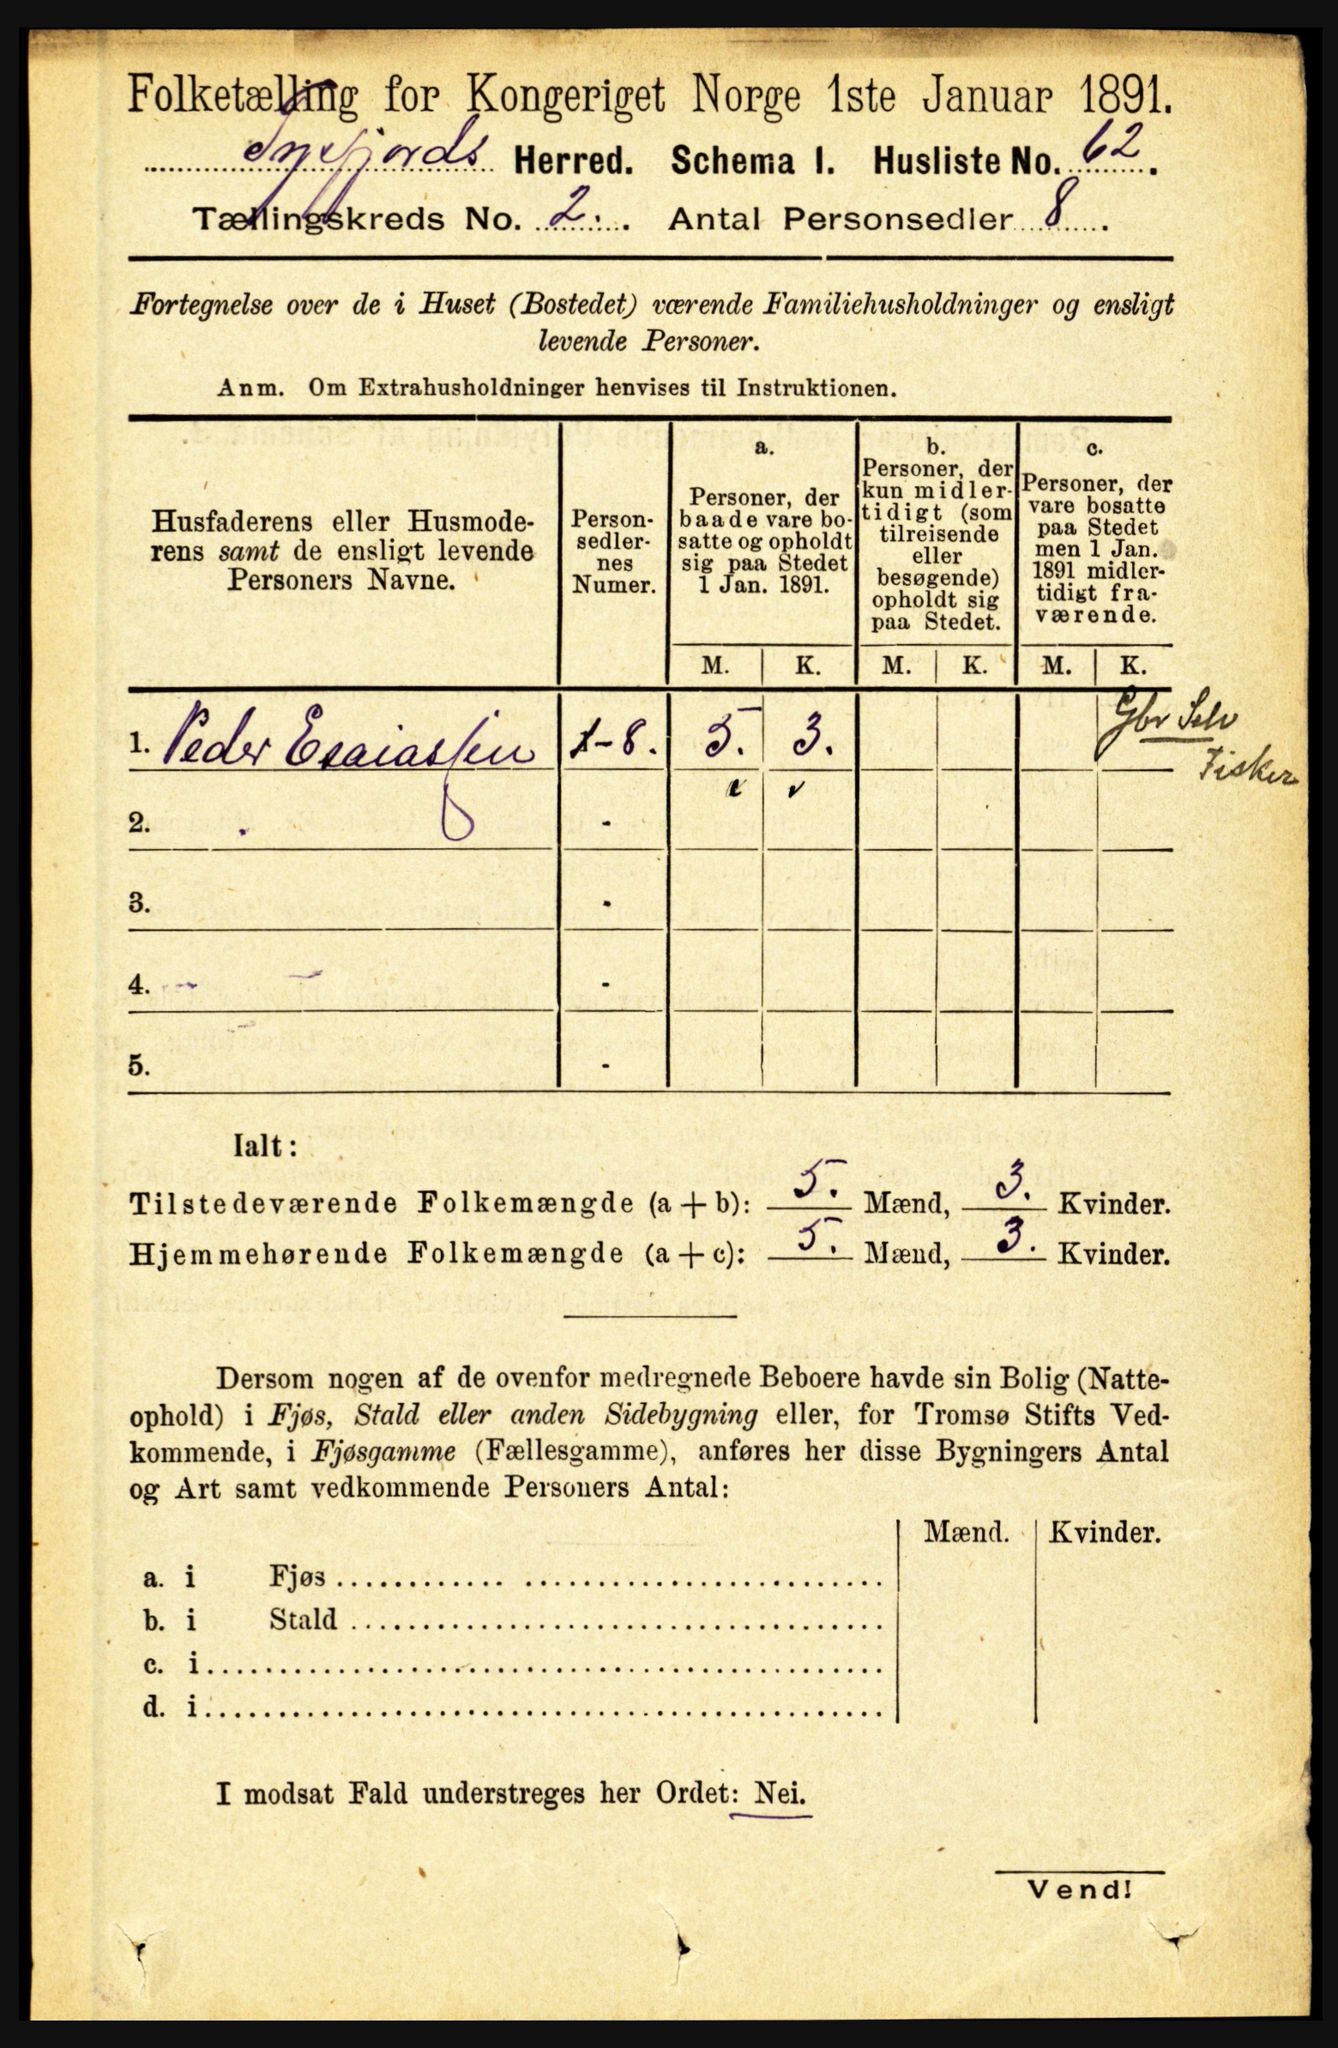 Folketælling for Kongeriget Norge 1ste Januar 1891.
Herred. Schema I. Husliste No. 62.
Tællingskreds No. 2. Antal Personsedler 8.
Fortegnelse over de i Huset (Bostedet) værende Familiehusholdninger og ensligt
levende Personer.
Anm. Om Extrahusholdninger henvises til Instruktionen.
Husfaderens eller Husmode-
rens samt de ensligt levende
Personers Navne.
Person-
sedler-
nes
Numer.
a.
Personer, der
baade vare bo-
satte og opholdt
sig paa Stedet
1 Jan. 1891.
b.
Personer, der
kun midler-
tidigt (som
tilreisende
eller
besøgende)
opholdt sig
paa Stedet.
c.
Personer, der
vare bosatte
paa Stedet
men 1 Jan.
1891 midler-
tidigt fra-
værende.
M. K. M. K. M. K.
1. Peder Esaiassen 1-8. 5. 3. Gbr Selv
Fisker
2. -
3. -
4. -
5. -
Ialt:
Tilstedeværende Folkemængde (a + b): 5. Mænd, 3. Kvinder.
Hjemmehørende Folkemængde (a + c): 5. Mænd, 3. Kvinder.
Dersom nogen af de ovenfor medregnede Beboere havde sin Bolig (Natte-
ophold) i Fjøs, Stald eller anden Sidebygning eller, for Tromsø Stifts Ved-
kommende, i Fjøsgamme (Fællesgamme), anføres her disse Bygningers Antal
og Art samt vedkommende Personers Antal:
Mænd. Kvinder.
a. i Fjøs
b. i Stald
c. i
d. i
I modsat Fald understreges her Ordet: Nei.
Vend!